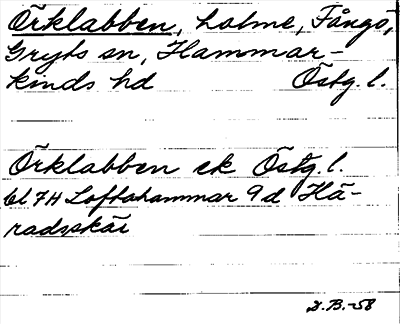 Örklabben, holme, Fångö,
Gryts sn, Hammar-
kinds hd Östg. l.
Örklabben ek Östg. l.
bl 7H Loftahammar 9d Hä-
radsskär
D.B.-58